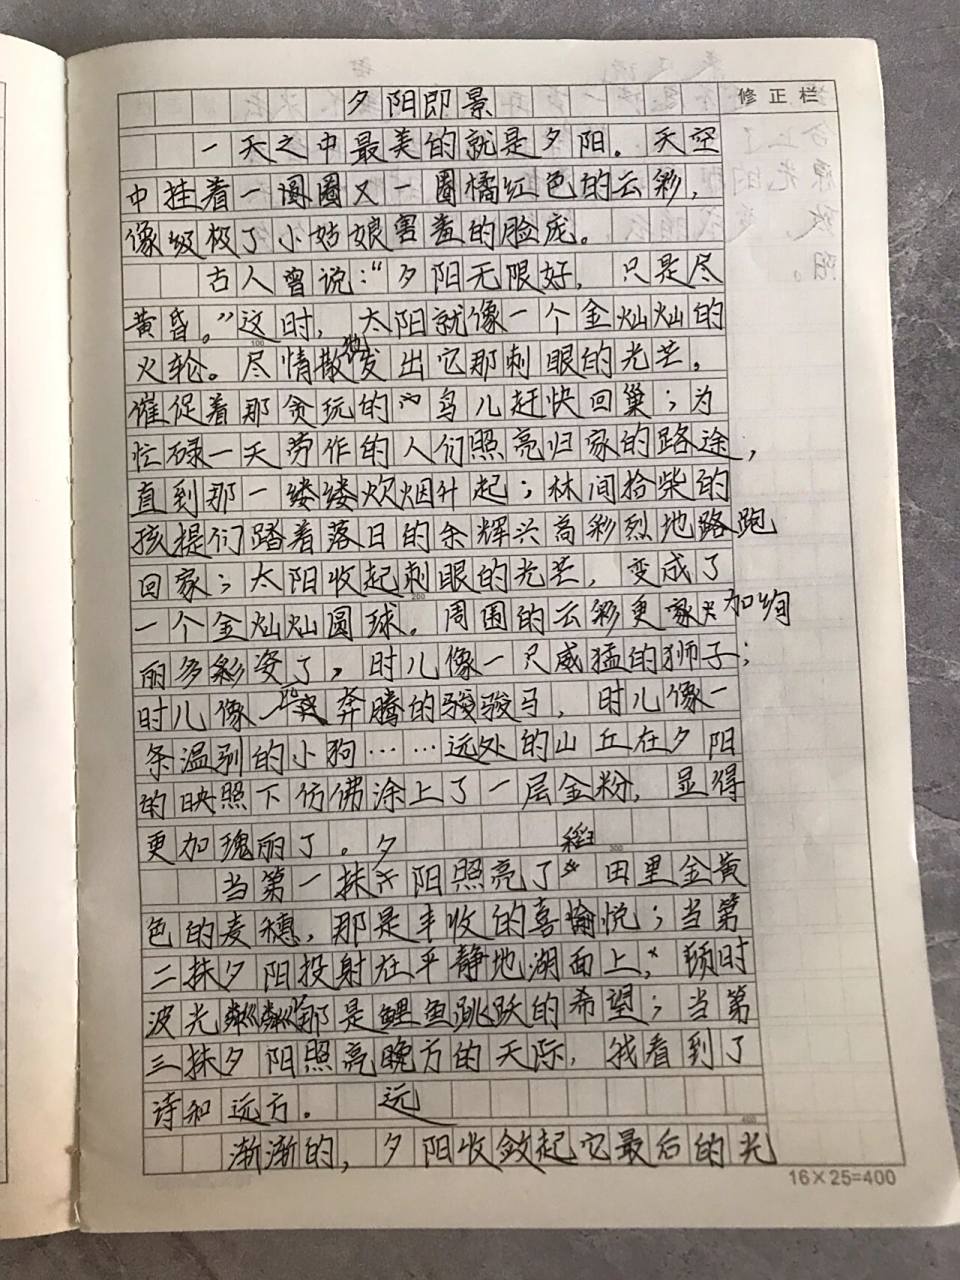 修正栏
夕阳即景
一天之中最美的就是夕阳。天空
中挂着一圆圈又一圈橘红色的云彩，
像级极了小姑娘害羞的脸庞。
古人曾说：“夕阳无限好，只是尽
黄昏。”这时，太阳就像一个金灿灿的
火轮。尽情散发出它那刺眼的光芒。
催促着那贪玩的鸟儿赶快回巢；为
忙碌一天劳作的人们照亮归家的路途，
直到那一缕缕炊烟升起；林间拾柴的
孩提们踏着落日的余辉兴高彩烈地路跑
回家；太阳收起刺眼的光芒，变成了
一个金灿灿圆球。周围的云彩更加绚
丽多彩姿了，时儿像一只威猛的狮子；
时儿像一匹奔腾的骏骏马，时儿像一
条温别的小狗……远处的山丘在夕阳
的映照下仿佛涂上了一层金粉，显得
更加瑰丽了。
当第一抹夕阳照亮了稻田里金黄
色的麦穗，那是丰收的喜愉悦；当第
二抹夕阳投射在平静地湖面上，顿时
波光粼粼那是鲤鱼跳跃的希望；当第
三抹夕阳照亮晚方的天际，我看到了
诗和远方。 远
渐渐的，夕阳收敛起它最后的光
16×25=400